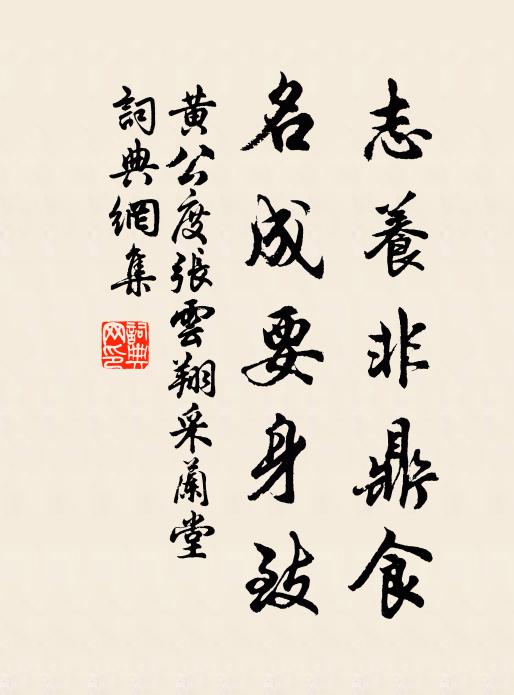 志養非鼎食
名成要身致
黄公度張雲翔采蘭堂
詞典網集
詞典网印